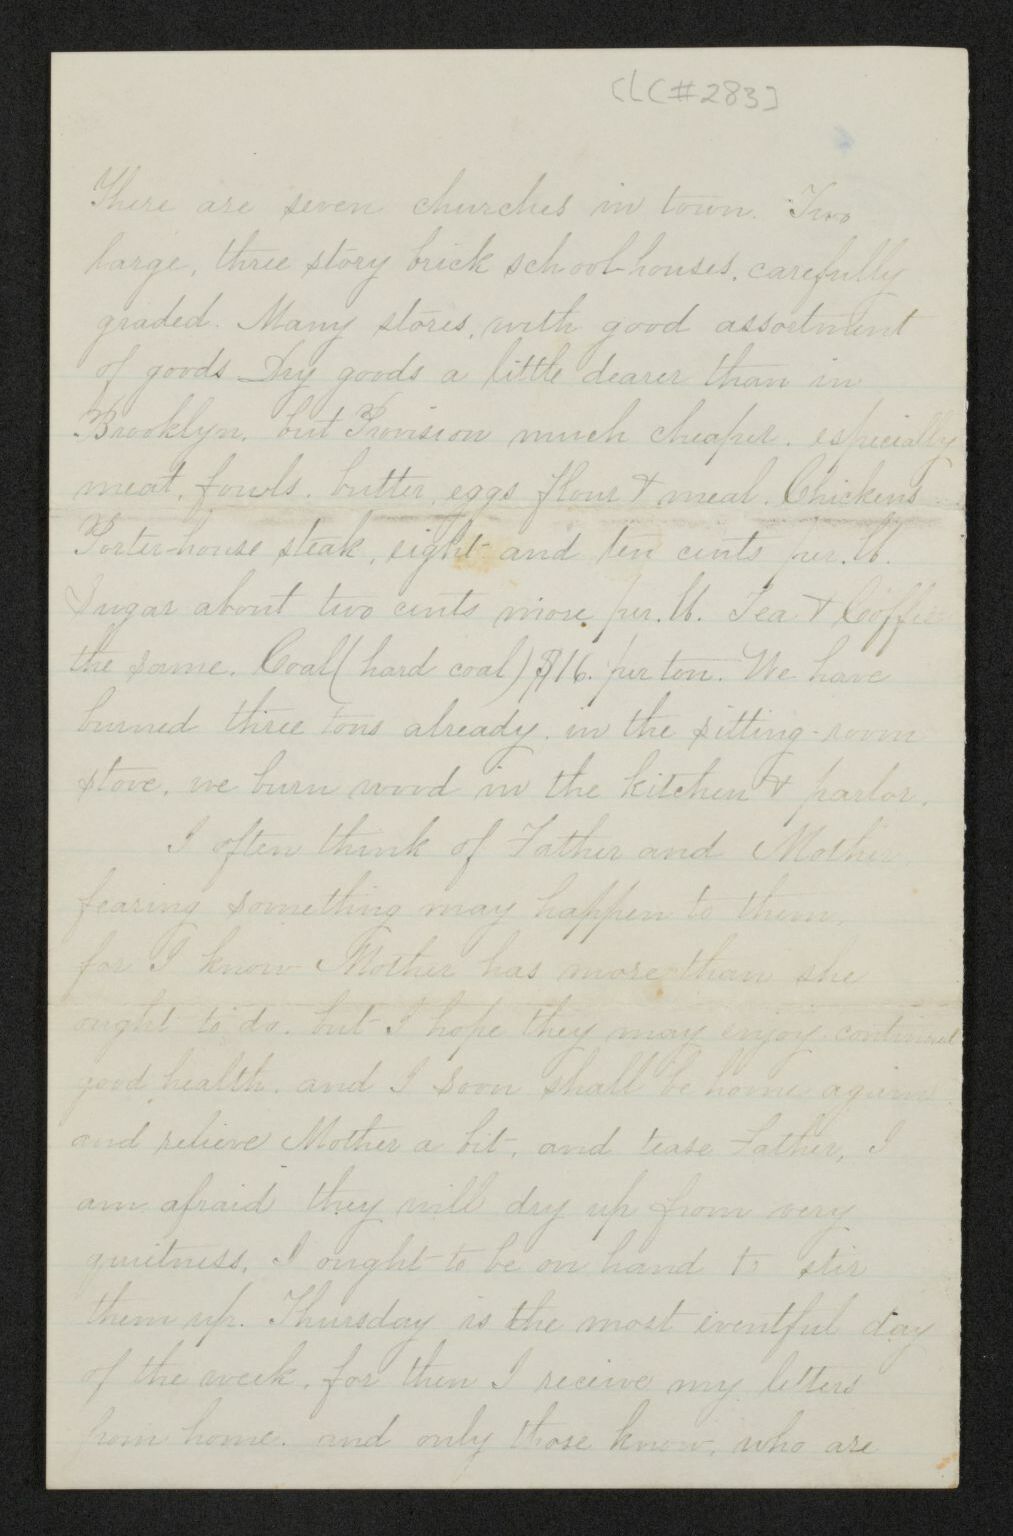 [LC#283]
There are seven churches in town. Two
large, three story brick school-houses, carefully
graded. Many stores, with good assortment
of goods Dry goods a little dearer than in
Brooklyn. but Provision much cheaper. especially
meat, fowls. butter, eggs flour & meal. Chickens
Porter-house steak, eight and ten cents per. lb.
Sugar about two cents more per. lb. Tea & Coffee
the same. Coal (hard coal) $16. per ton. We have
burned three tons already. in the sitting-room
stove. we burn wood in the kitchen & parlor.
I often think of Father and Mother
fearing something may happen to them,
for I know Mother has more than she
ought to do. but I hope they may enjoy continued
good health. and I soon shall be home again
and relieve Mother a bit, and tease Father, I
am afraid they will dry up from very
quietness. I ought to be on hand to stir
them up. Thursday is the most eventful day
of the week. for then I receive my letters
from home. and only those know, who are